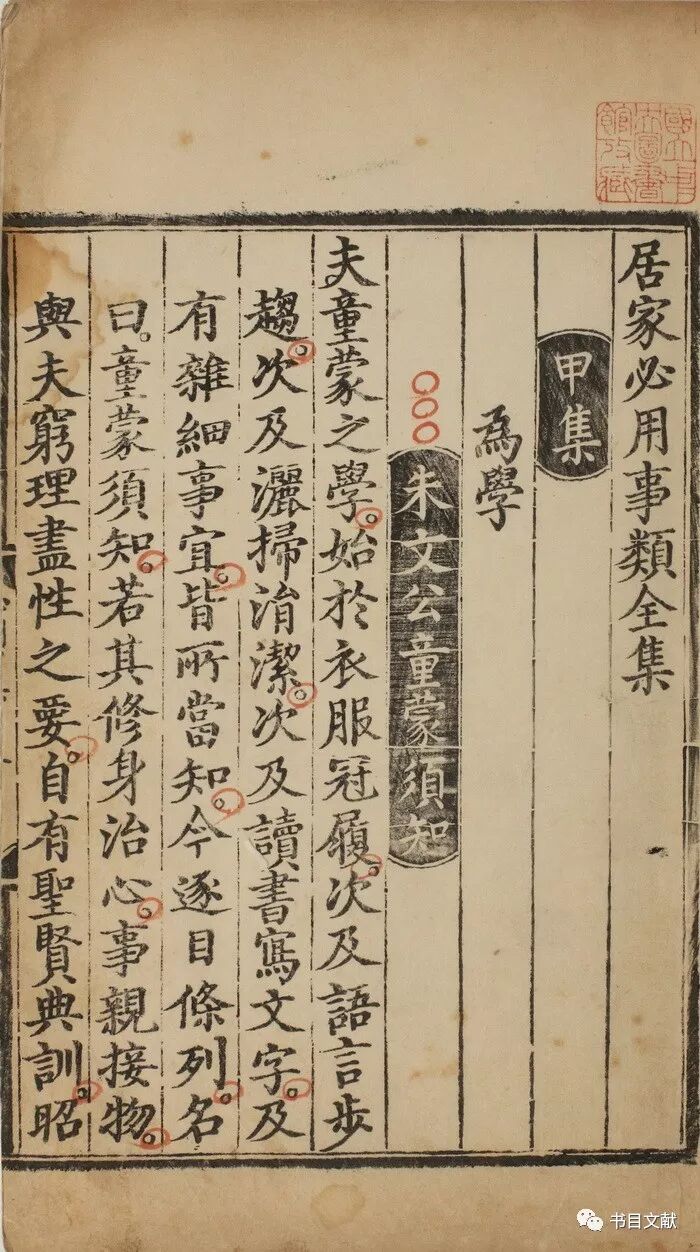 居家必用事類全集
甲集
為學
朱文公童蒙須知
夫童蒙之學。始於衣服冠履。次及語言步
趨。次及灑掃涓潔。次及讀書寫文字。及
有雜細事宜。皆所當知。今逐目條列。名
曰。童蒙須知。若其修身治心。事親接物。
與夫窮理盡性之要。自有聖賢典訓。昭
书目文献